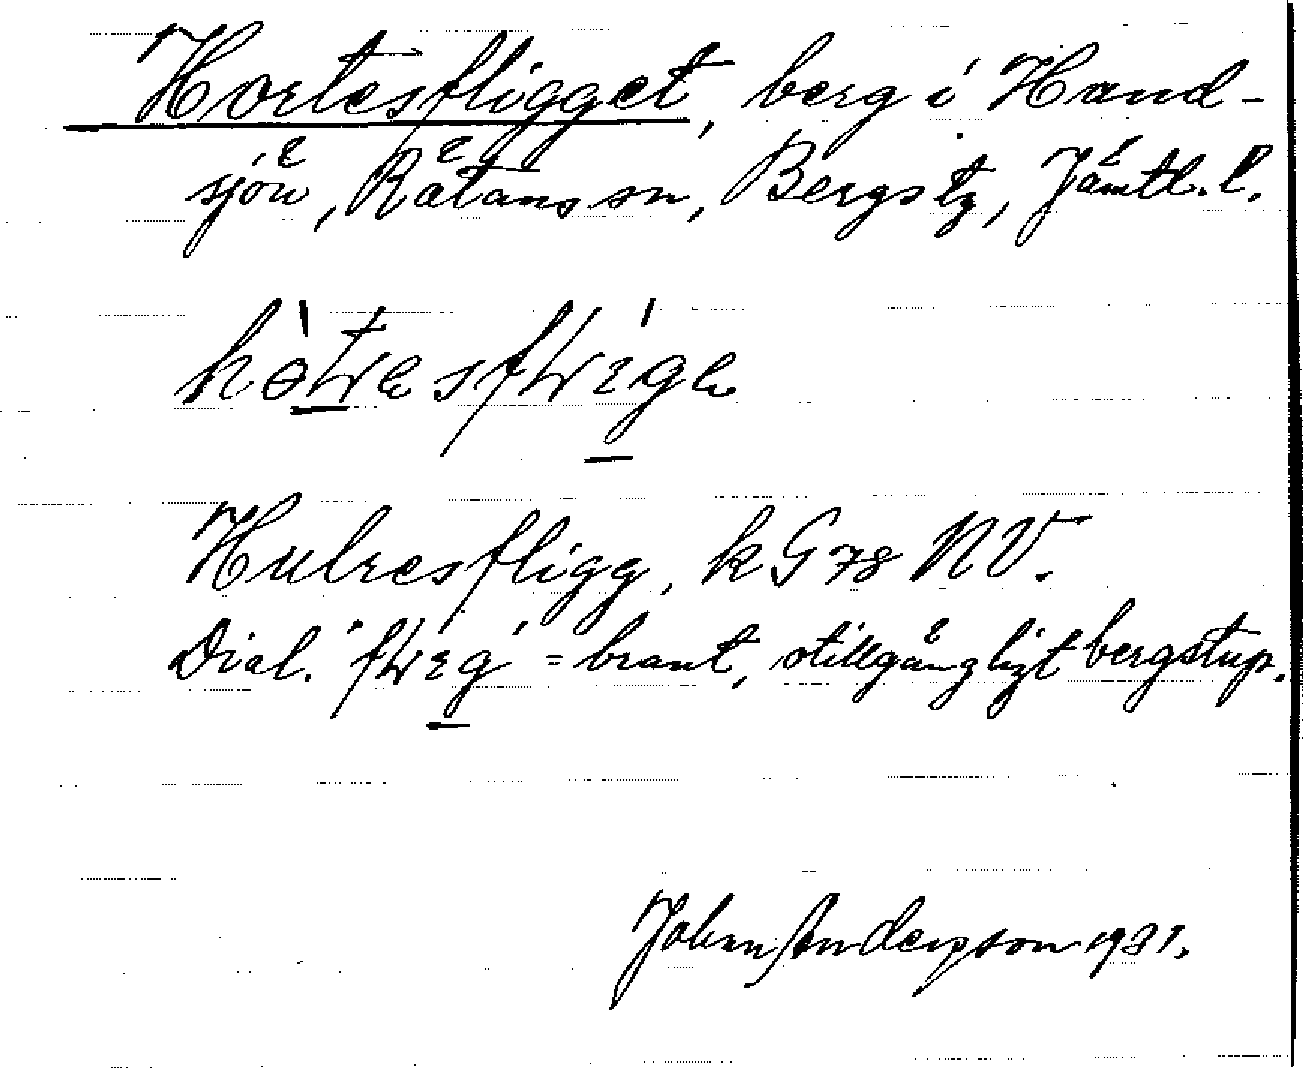 Hortesfligget, berg i Hand-
sjön, Rätans sn, Bergs tg, Jämtl. l.
Hulresfligg, k G 78 NV.
Dial. = brant, otillgängligt bergstup.
Johan Anderson 1931.